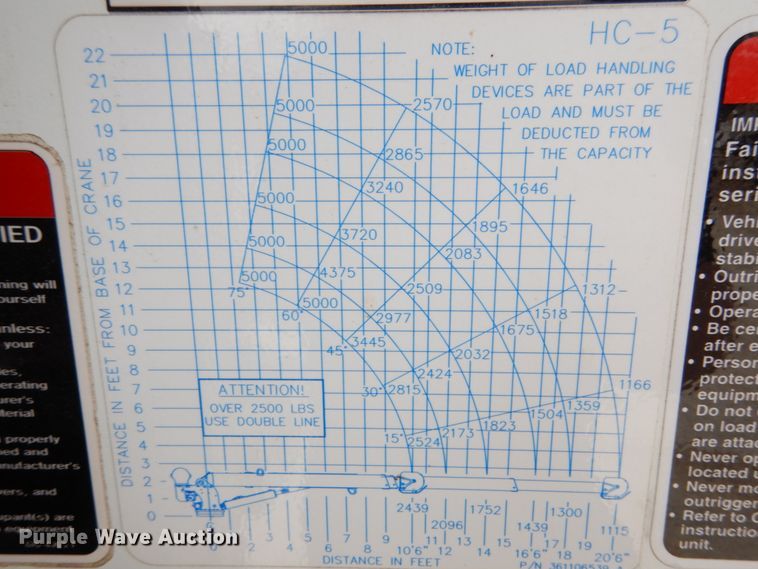 HC-5
NOTE:
WEIGHT OF LOAD HANDLING
DEVICES ARE PART OF THE
LOAD AND MUST BE
DEDUCTED FROM
THE CAPACITY
DISTANCE IN FEET FROM BASE OF CRANE
22
21
20
19
18
17
16
15
14
13
12
11
10
9
8
7
6
5
4
3
2
1
0
5000
2570
5000
2865
5000
3240
1646
5000
3720
1895
5000
4375
2083
75°
5000
60°
5000
2509
1312
2977
1518
45°
3445
1675
2032
2424
30°
2815
1166
1359
1504
1823
2173
15°
2524
ATTENTION!
OVER 2500 LBS
USE DOUBLE LINE
2439
1752
1300
2096
1439
1115
0
2
3
4
5
6
7
8
9
10'6"
12
13
14
16'6"
18
19
20'6"
DISTANCE IN FEET
P/N 361106539 A
IED
ning will
ourself
nless:
your
es,
erating
urer's
terial
properly
ned and
nufacturer's
vers, and
upant(s) are
equipment
IMP
Fai
inst
seri
• Vehi
drive
stabi
• Outri
prope
• Opera
• Be cer
after e
• Person
protect
equipm
• Do not
on load
are attac
• Never op
located u
• Never mo
outrigger
• Refer to O
instruction
unit.
Purple Wave Auction